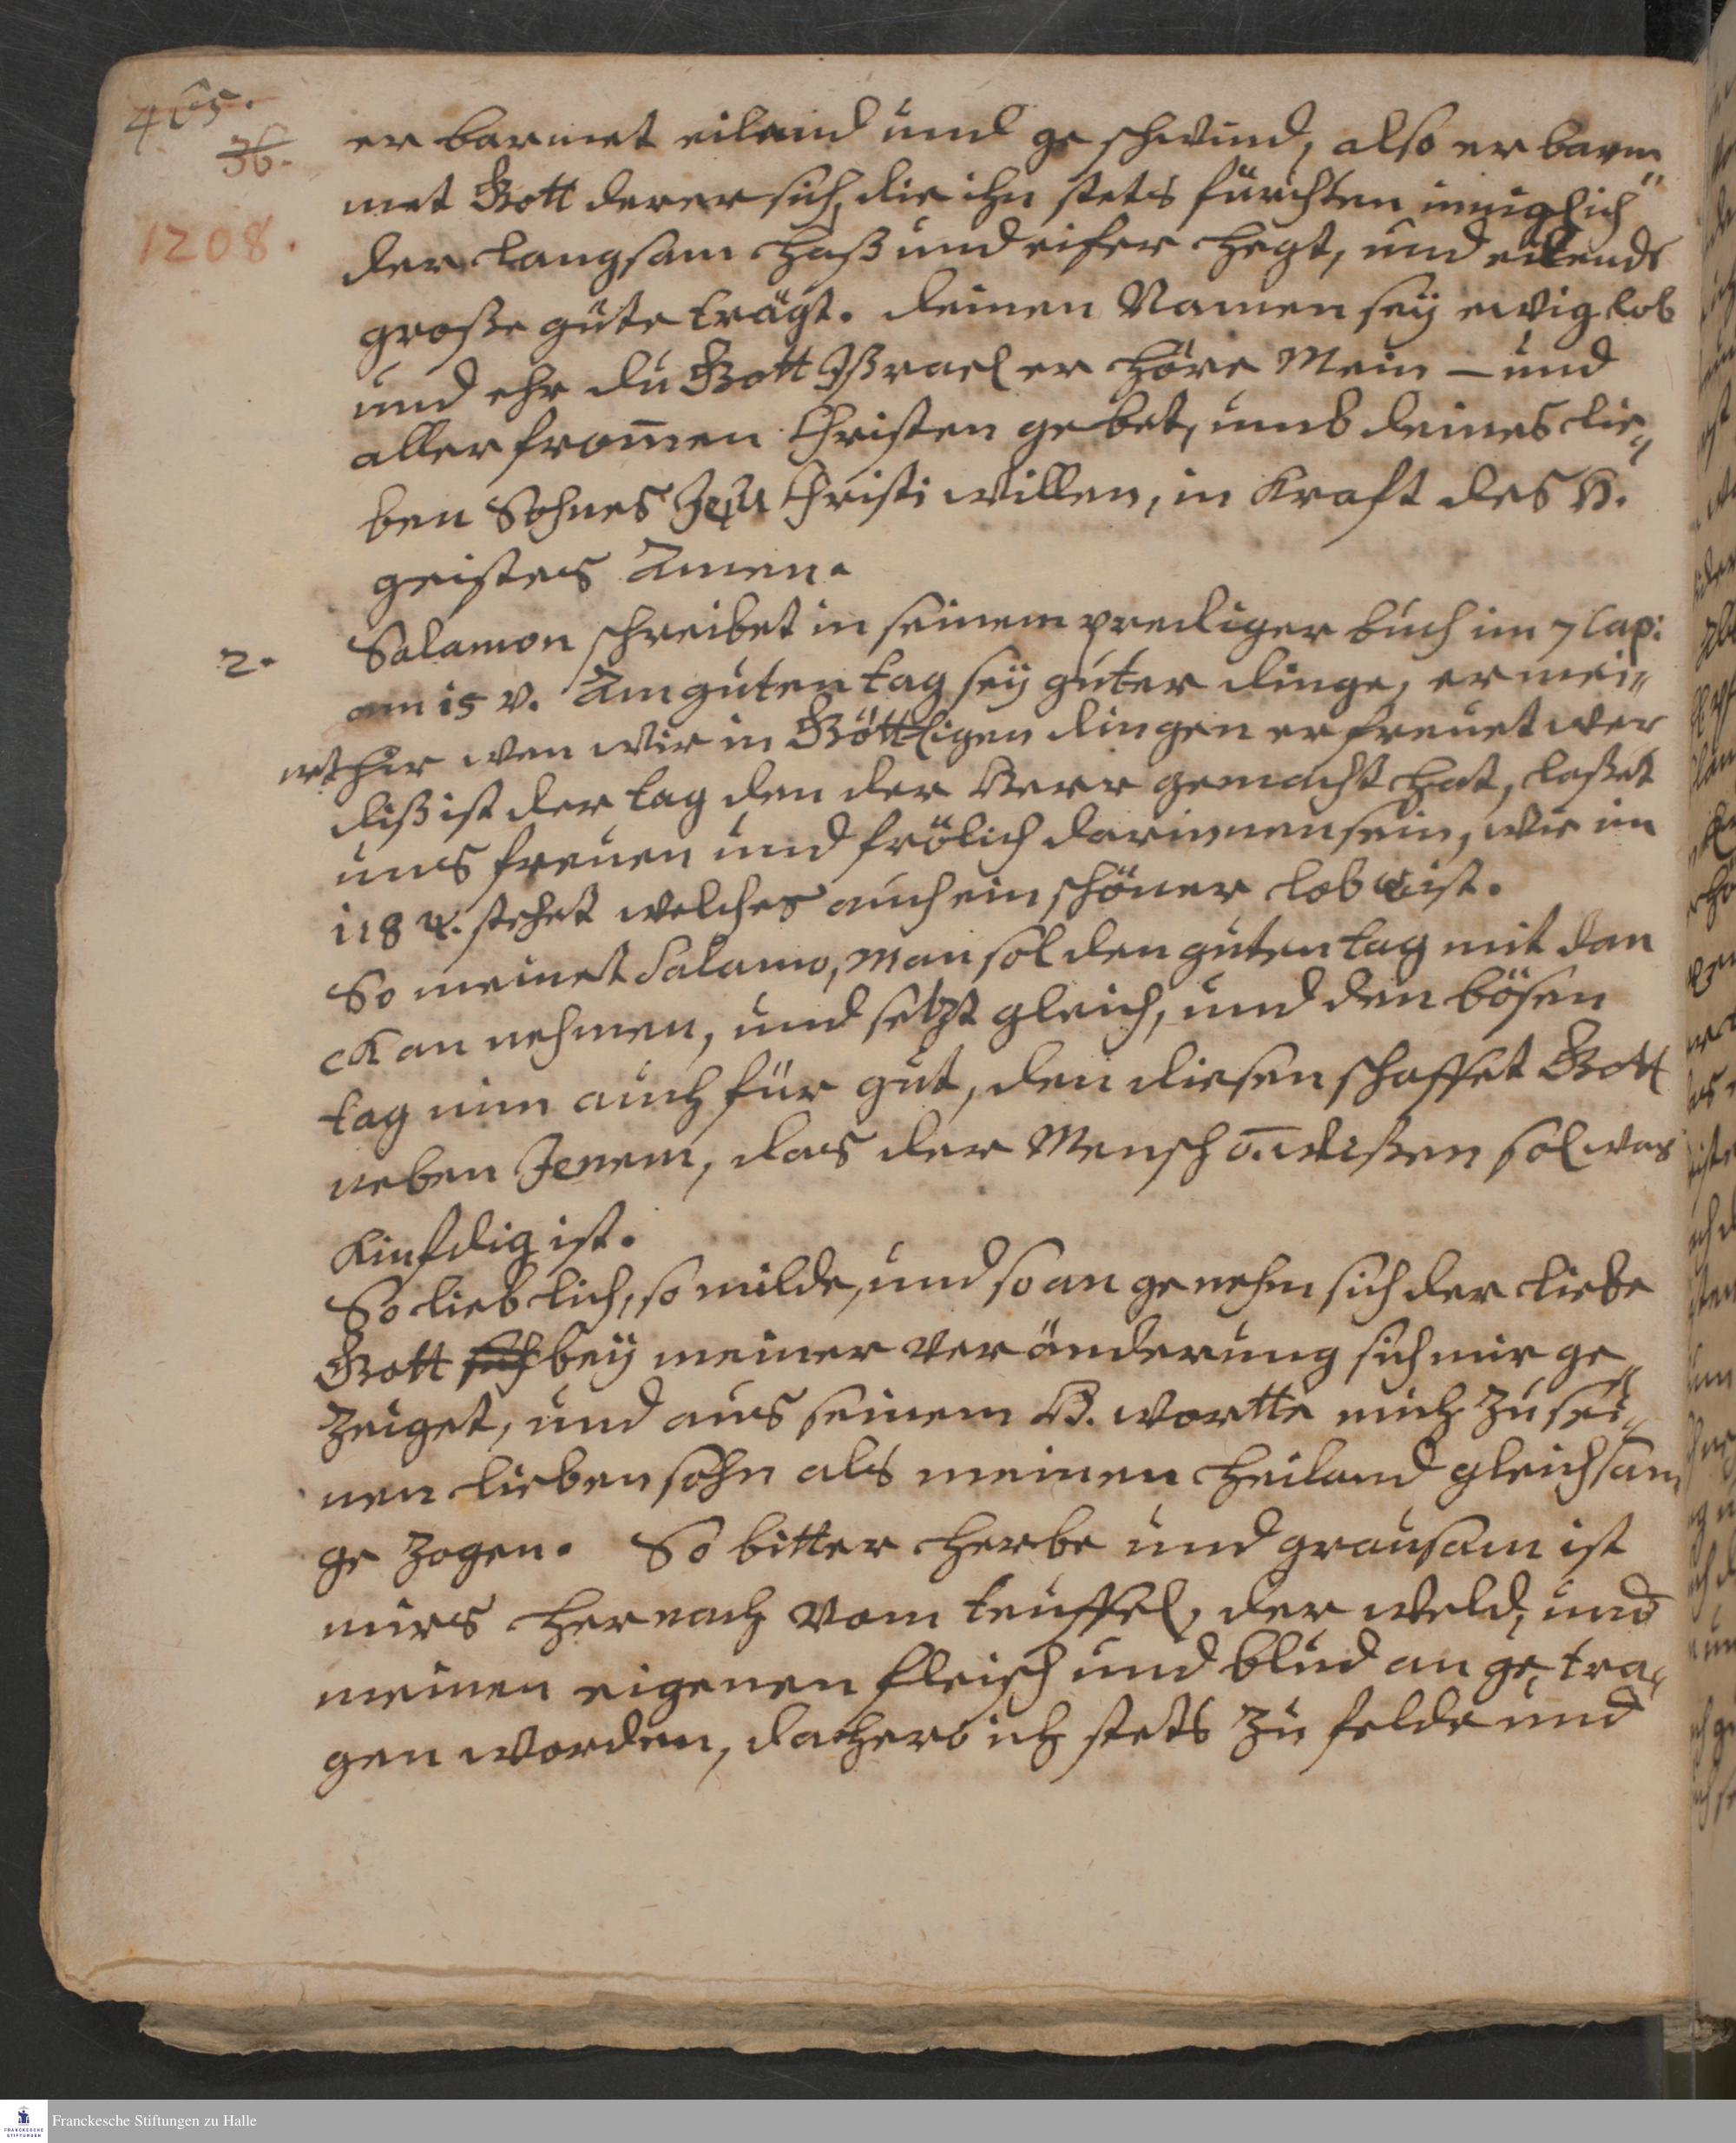 465.
36.
1208.
er barmet eilend und ge schwind, also er barm„
met Gott derer sich, die ihn stets fürchten inniglich
der langsam haß und eifer hegt, und eilends
große güte trägt. deinen Namen seÿ ewig lob
und ehr du Gott Jßrael er höre Mein – und
aller from̄en Christen gebet, umb deines lie„
ben Sohnes Jesu Christi willen, in Kraft des H.
geistes Amen.
2. Salamon schreibet in seinem prediger buch im 7 Cap:
am 15 v. Am guten tag seÿ guter dinge, er mei„
net hir wen wir in Göttligen dingen erfreuet wer
diß ist der tag den der Herr gemacht hat, laßet
uns freuen und frölich darinnen sein, wie im
118 ψ. stehet welches auch ein schöner lob ψ ist.
So meinet Salamo, Man sol den guten tag mit dan
ck an nehmen, und setzt gleich, und den bösen
tag nim auch für gut, den diesen schaffet Gott
neben Jenem, das der Mensch ō. wißen sol was
Künfdig ist.
So lieb lich, so milde, und so an genehm sich der liebe
Gott sich beÿ meiner Veränderung sich mir ge„
zeiget, und aus seinem H. wortte mich zu sei„
nen lieben sohn als meinen heiland gleichsam
ge zogen. So bitter herbe und grausam ist
mirs hernach vom teuffel, der weld, und
meinen eigenen fleisch und blud an ge tra„
gen worden, dahero ich stets zu felde und
Franckesche Stiftungen zu Halle
FRANCKESCHE STIFTUNGEN